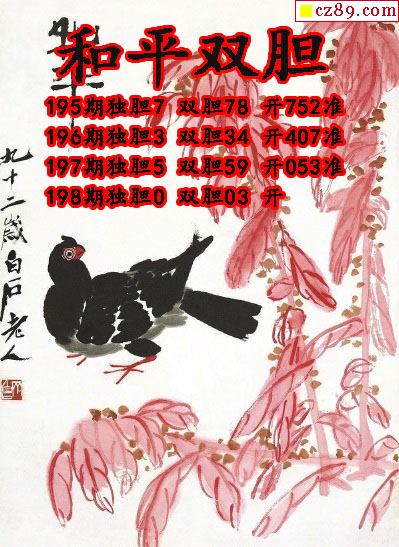 cz89.com
和平双胆
195期独胆7 双胆78 开752准
196期独胆3 双胆34 开407准
197期独胆5 双胆59 开053准
198期独胆0 双胆03 开
九十二岁白石老人